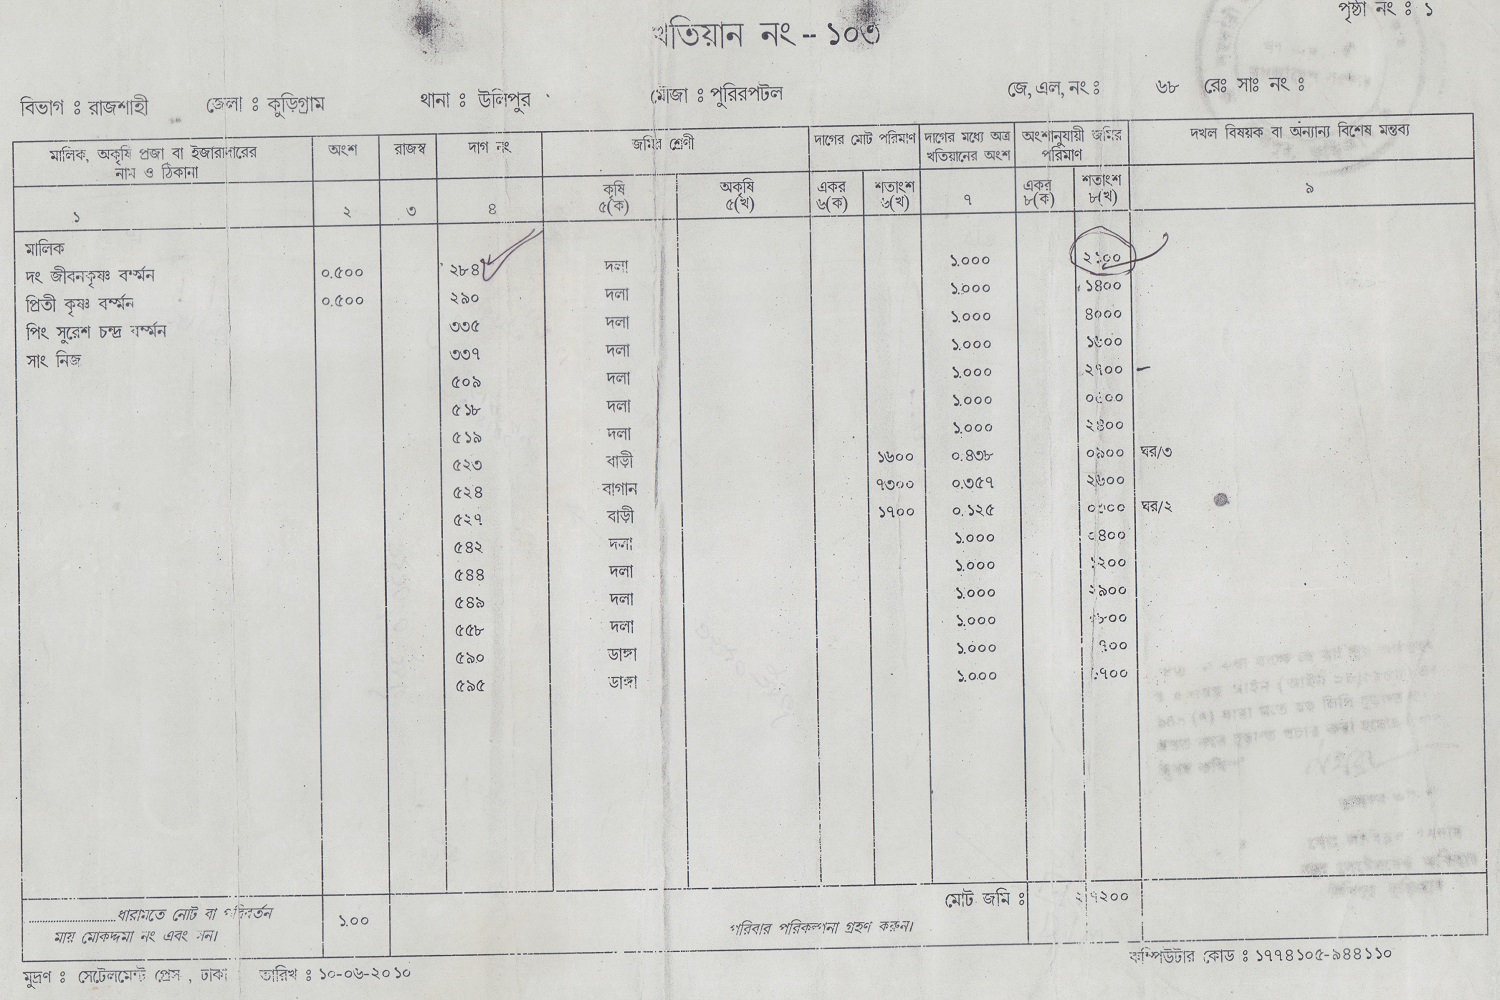 পৃষ্ঠা নং : ১
খতিয়ান নং -- ১০৩
বিভাগ : রাজশাহী জেলা : কুড়িগ্রাম থানা : উলিপুর মৌজা : পুরিরপটল জে, এল, নং : ৬৮ রেঃ সাঃ নং :
মালিক, অকৃষি প্রজা বা ইজারাদারের নাম ও ঠিকানা অংশ রাজস্ব দাগ নং জমির শ্রেণী দাগের মোট পরিমাণ দাগের মধ্যে অত্র খতিয়ানের অংশ অংশানুযায়ী জমির পরিমাণ দখল বিষয়ক বা অন্যান্য বিশেষ মন্তব্য
কৃষি অকৃষি একর শতাংশ একর শতাংশ
১ ২ ৩ ৪ ৫(ক) ৫(খ) ৬(ক) ৬(খ) ৭ ৮(ক) ৮(খ) ৯
মালিক
দং জীবনকৃষ্ণ বর্ম্মন ০.৫০০ ২৮৪ দলা ১.০০০ ২১০০
প্রিতী কৃষ্ণ বর্ম্মন ০.৫০০ ২৯০ দলা ১.০০০ ১৪০০
পিং সুরেশ চন্দ্র বর্ম্মন ৩৩৫ দলা ১.০০০ ৪০০০
সাং নিজ ৩৩৭ দলা ১.০০০ ১৬০০
৫০৯ দলা ১.০০০ ২৭০০
৫১৮ দলা ১.০০০
৫১৯ দলা ১.০০০ ২৪০০
৫২৩ বাড়ী ১৬০০ ০.৪৩৮ ০৯০০ ঘর/৩
৫২৪ বাগান ৭৩০০ ০.৩৫৭ ২৬০০
৫২৭ বাড়ী ১৭০০ ০.১২৫ ঘর/২
৫৪২ দলা ১.০০০
৫৪৪ দলা ১.০০০
৫৪৯ দলা ১.০০০
৫৫৮ দলা ১.০০০
৫৯০ ডাঙ্গা ১.০০০
৫৯৫ ডাঙ্গা ১.০০০
মোট জমি :
ধারামতে নোট বা পরিবর্তন
মায় মোকদ্দমা নং এবং সন। ১.০০ পরিবার পরিকল্পনা গ্রহণ করুন।
মুদ্রণ : সেটেলমেন্ট প্রেস , ঢাকা তারিখ : ১০-০৬-২০১০ কম্পিউটার কোড : ১৭৭৪১০৫-৯৪৪১১০